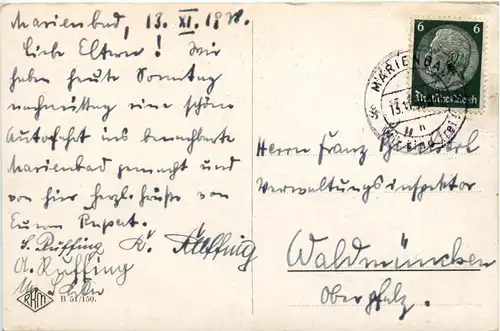 Marienbad, 13. XI. 1938.
Liebe Eltern! Wir
haben heute Sonntag
nachmittag eine schöne
Autofahrt ins benachbarte
Marienbad gemacht und
von hier herzl. Grüße von
Eurem Rupert.
S. Ruffing
A. Ruffing
RKM
B 51/150.
6
Deutsches Reich
MARIENBAD
13.11.38
Wir sind frei!
Herrn Franz
Verwaltungsinspektor
Waldmünchen
Oberpfalz.